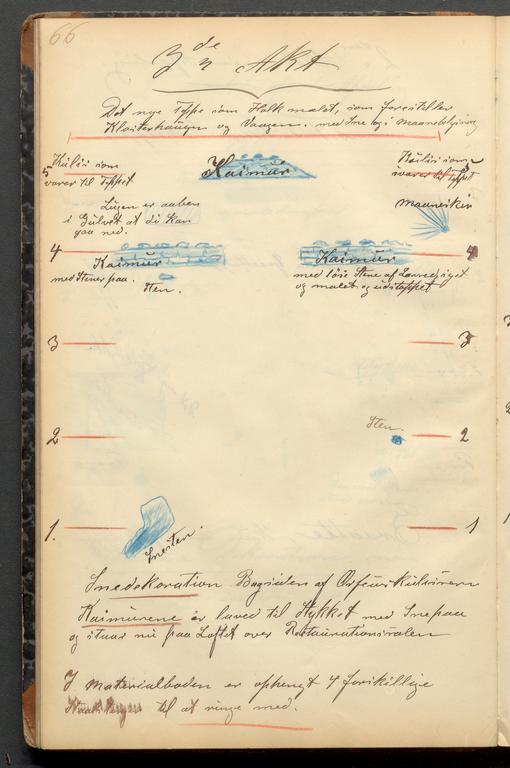 66
3de Akt
Det nye Teppe som Falk malet, som forestiller
Klosterhaugen og Vaagen. med Sne og i Maanebelysning
Kulis som
5 svarer til Teppet
Kaimur
Kulis som 5
svarer til Teppet
Lugen er aaben
i Gulvet at di kan
gaa ned.
Maaneskin
4 Kaimur
med Stener paa.
Sten.
Kaimur 4
med löse Stene af
og malet og udstoppet
3 3
Sten.
2 2
1. Snesten. 1
Snedekoration Bagsiden af Orfeuskulisserne
Kaimurene er laved til Stykket med Sne paa
og staar nu paa Loftet over Restaurationssalen
I Materialboden er ophengt 4 forskillige
til at ringe med.